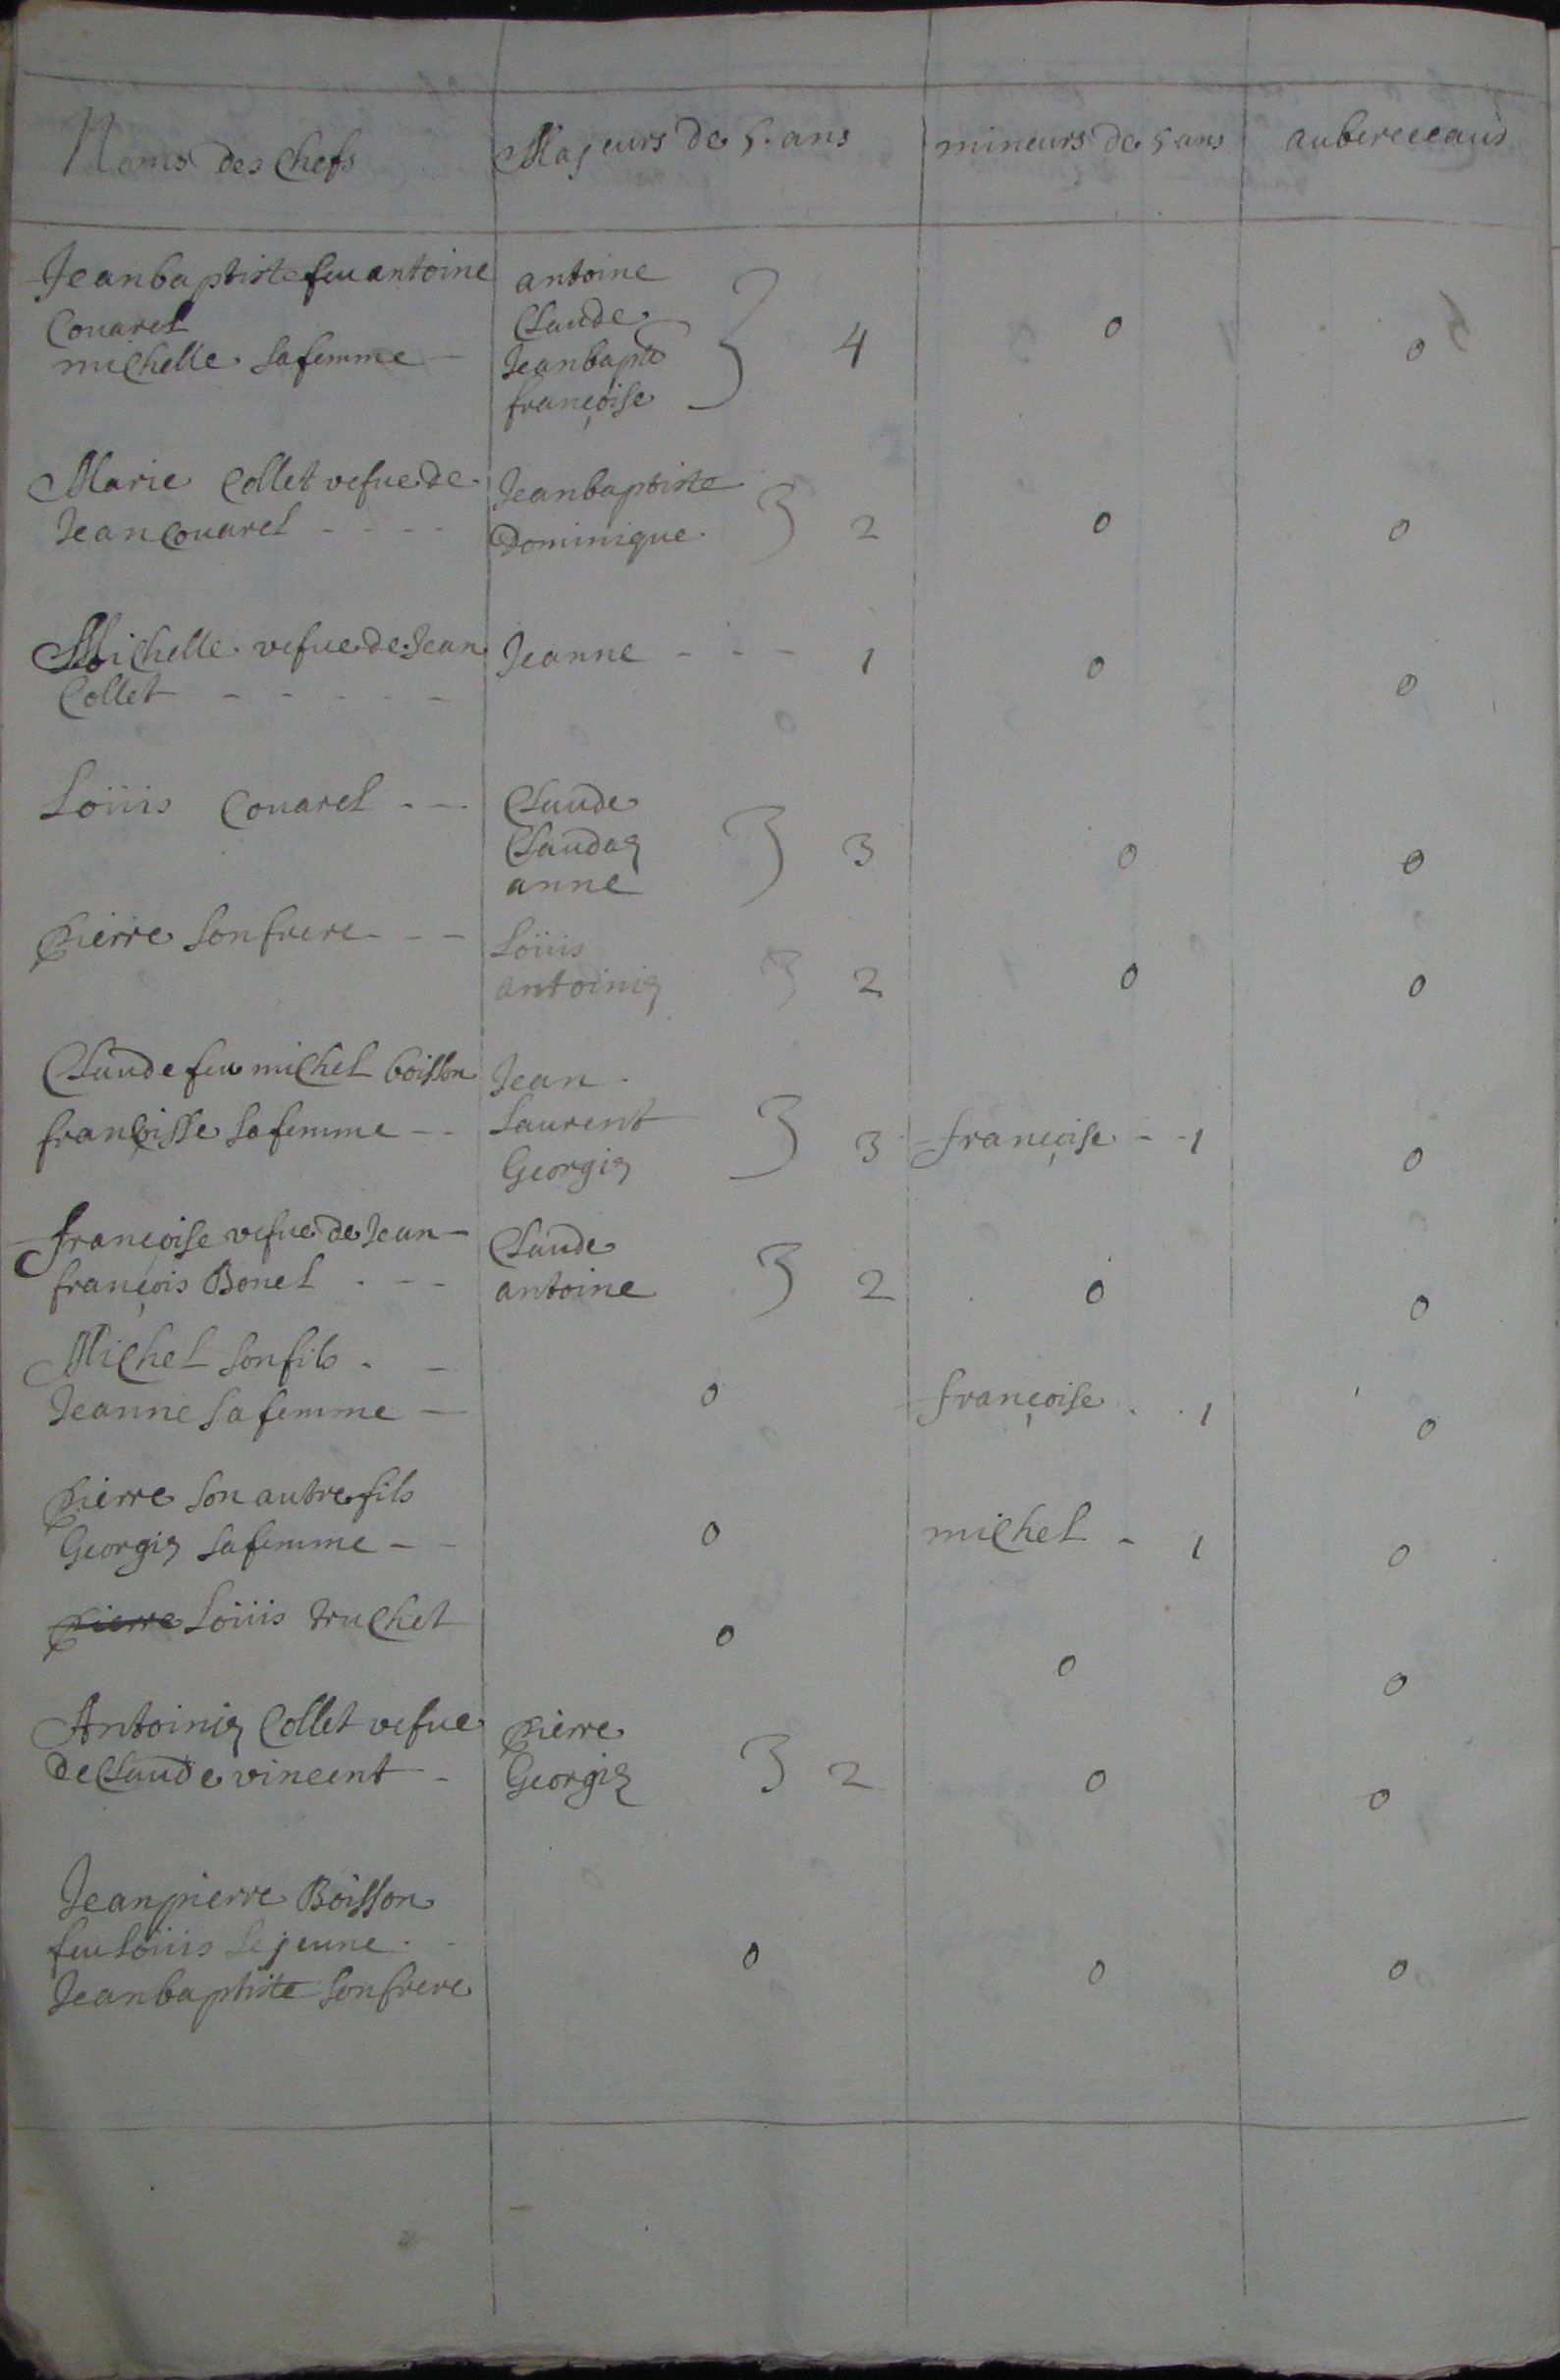 Noms des Chefs | Majeurs de 5. ans | mineurs de 5 ans | au berceeaud
Jeanbaptiste feu antoine | antoine
Couarel | Claude
michelle sa femme - | Jeanbapte } 4 | 0 | 0
françoise
Marie Collet vefue de | Jeanbaptiste
Jean Couarel - - - - | Dominique } 2 | 0 | 0
Michelle vefue de Jean | Jeanne - - - 1 | 0 | 0
Collet - - - - -
Loüis Couarel - - | Claude
Claudaz } 3 | 0 | 0
anne
pierre son frere - - | Loüis
antoiniz } 2 | 0 | 0
Claude feu michel boisson | Jean
françoisse sa femme - - | Laurent } 3 | françoise - - 1 | 0
Georgiz
françoise vefue de Jean - | Claude
françois Bonel . - - | antoine } 2 | 0 | 0
Michel son fils . -
Jeanne sa femme - | 0 | françoise . . 1 | 0
pierre son autre fils
Georgiz sa femme - - | 0 | michel - 1 | 0
pierre Loüis truchet | 0 | 0 | 0
Antoiniz Collet vefue | pierre
de Claude vincent - | Georgiz } 2 | 0 | 0
Jeanpierre Boisson
feu Loüis le jeune . - | 0 | 0 | 0
Jeanbaptiste son frere